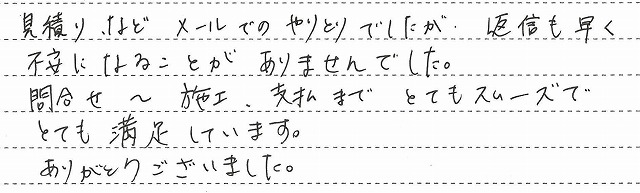 見積り、など メールでのやりとりでしたが、返信も早く
不安になることがありませんでした。
問合せ〜施工、支払まで とてもスムーズで
とても満足しています。
ありがとうございました。